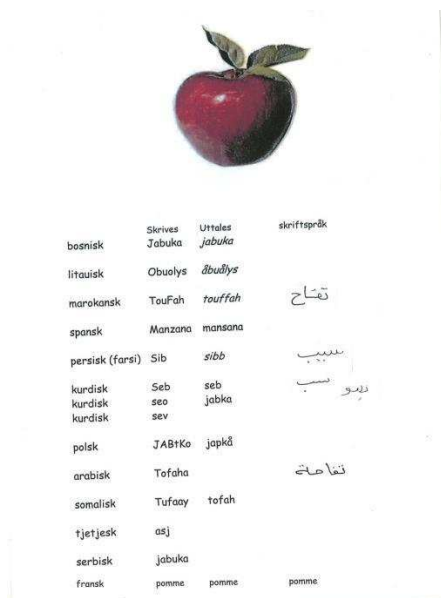 Skrives Uttales skriftspråk
bosnisk Jabuka jabuka
litauisk Obuolys åbuålys
marokansk TouFah touffah تفاح
spansk Manzana mansana
persisk (farsi) Sib sibb سیب
kurdisk Seb seb سب سیو
kurdisk seo jabka
kurdisk sev
polsk JABtKo japkå
arabisk Tofaha تفاحة
somalisk Tufaay tofah
tjetjesk asj
serbisk jabuka
fransk pomme pomme pomme